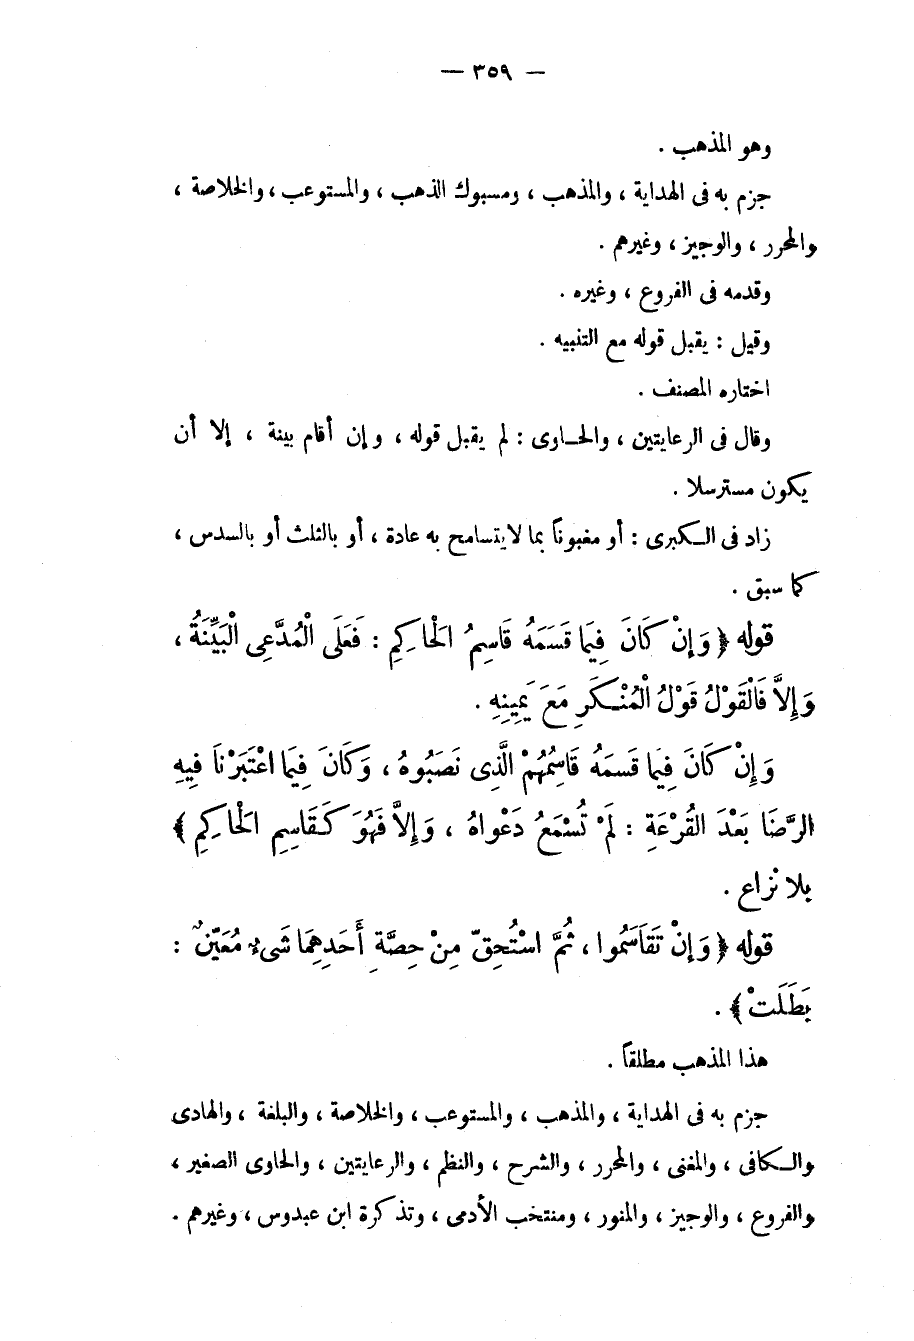 — ٣٥٩ —
وهو المذهب .
جزم به فى الهداية ، والمذهب ، ومسبوك الذهب ، والمستوعب ، والخلاصة ،
والمحرر ، والوجيز ، وغيرهم .
وقدمه فى الفروع ، وغيره .
وقيل : يقبل قوله مع التنبيه .
اختاره المصنف .
وقال فى الرعايتين ، والحاوى : لم يقبل قوله ، وإن أقام بينة ، إلا أن
يكون مسترسلا .
زاد فى الكبرى : أو مغبوناً بما لا يتسامح به عادة ، أو بالثلث أو بالسدس ،
كما سبق .
قوله ﴿ وَإِنْ كَانَ فِيمَا قَسَمَهُ قَاسِمُ الْحَاكِمِ : فَعَلَى الْمُدَّعِى الْبَيِّنَةُ ،
وَإِلاَّ فَالْقَوْلُ قَوْلُ الْمُنْكَرِ مَعَ يَمِينِهِ .
وَإِنْ كَانَ فِيمَا قَسمَهُ قَاسِمُهُمْ الَّذِى نَصَبُوهُ ، وَكَانَ فِيمَا اعْتَبَرْنَا فِيهِ
الرِّضَا بَعْدَ الْقُرْعَةِ : لَمْ تُسْمَعْ دَعْوَاهُ ، وَإِلاَّ فَهُوَ كَقَاسِمِ الْحَاكِمِ ﴾
بلا نزاع .
قوله ﴿ وَإِنْ تَقَاسَمُوا ، ثُمَّ اسْتُحِقّ مِنْ حِصَّةِ أَحَدِهِمَا شَىءٌ مُعَيّنٌ :
بَطَلَتْ ﴾ .
هذا المذهب مطلقاً .
جزم به فى الهداية ، والمذهب ، والمستوعب ، والخلاصة ، والبلغة ، والهادى
والكافى ، والمغنى ، والمحرر ، والشرح ، والنظم ، والرعايتين ، والحاوى الصغير ،
والفروع ، والوجيز ، والمنور ، ومنتخب الأدمى ، وتذكرة ابن عبدوس ، وغيرهم .